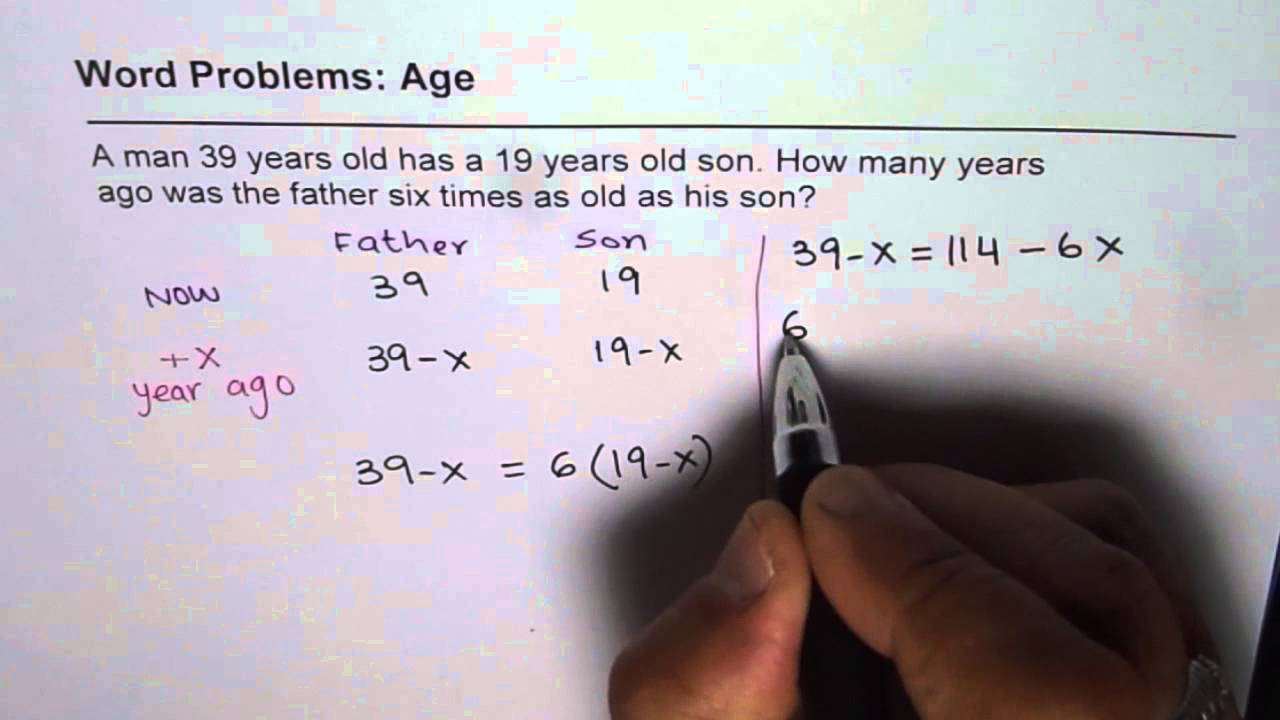 Word Problems: Age
A man 39 years old has a 19 years old son. How many years
ago was the father six times as old as his son?
Father Son
Now 39 19
+x 39-x 19-x
year ago
39-x = 6(19-x)
39-x = 114 - 6x
6